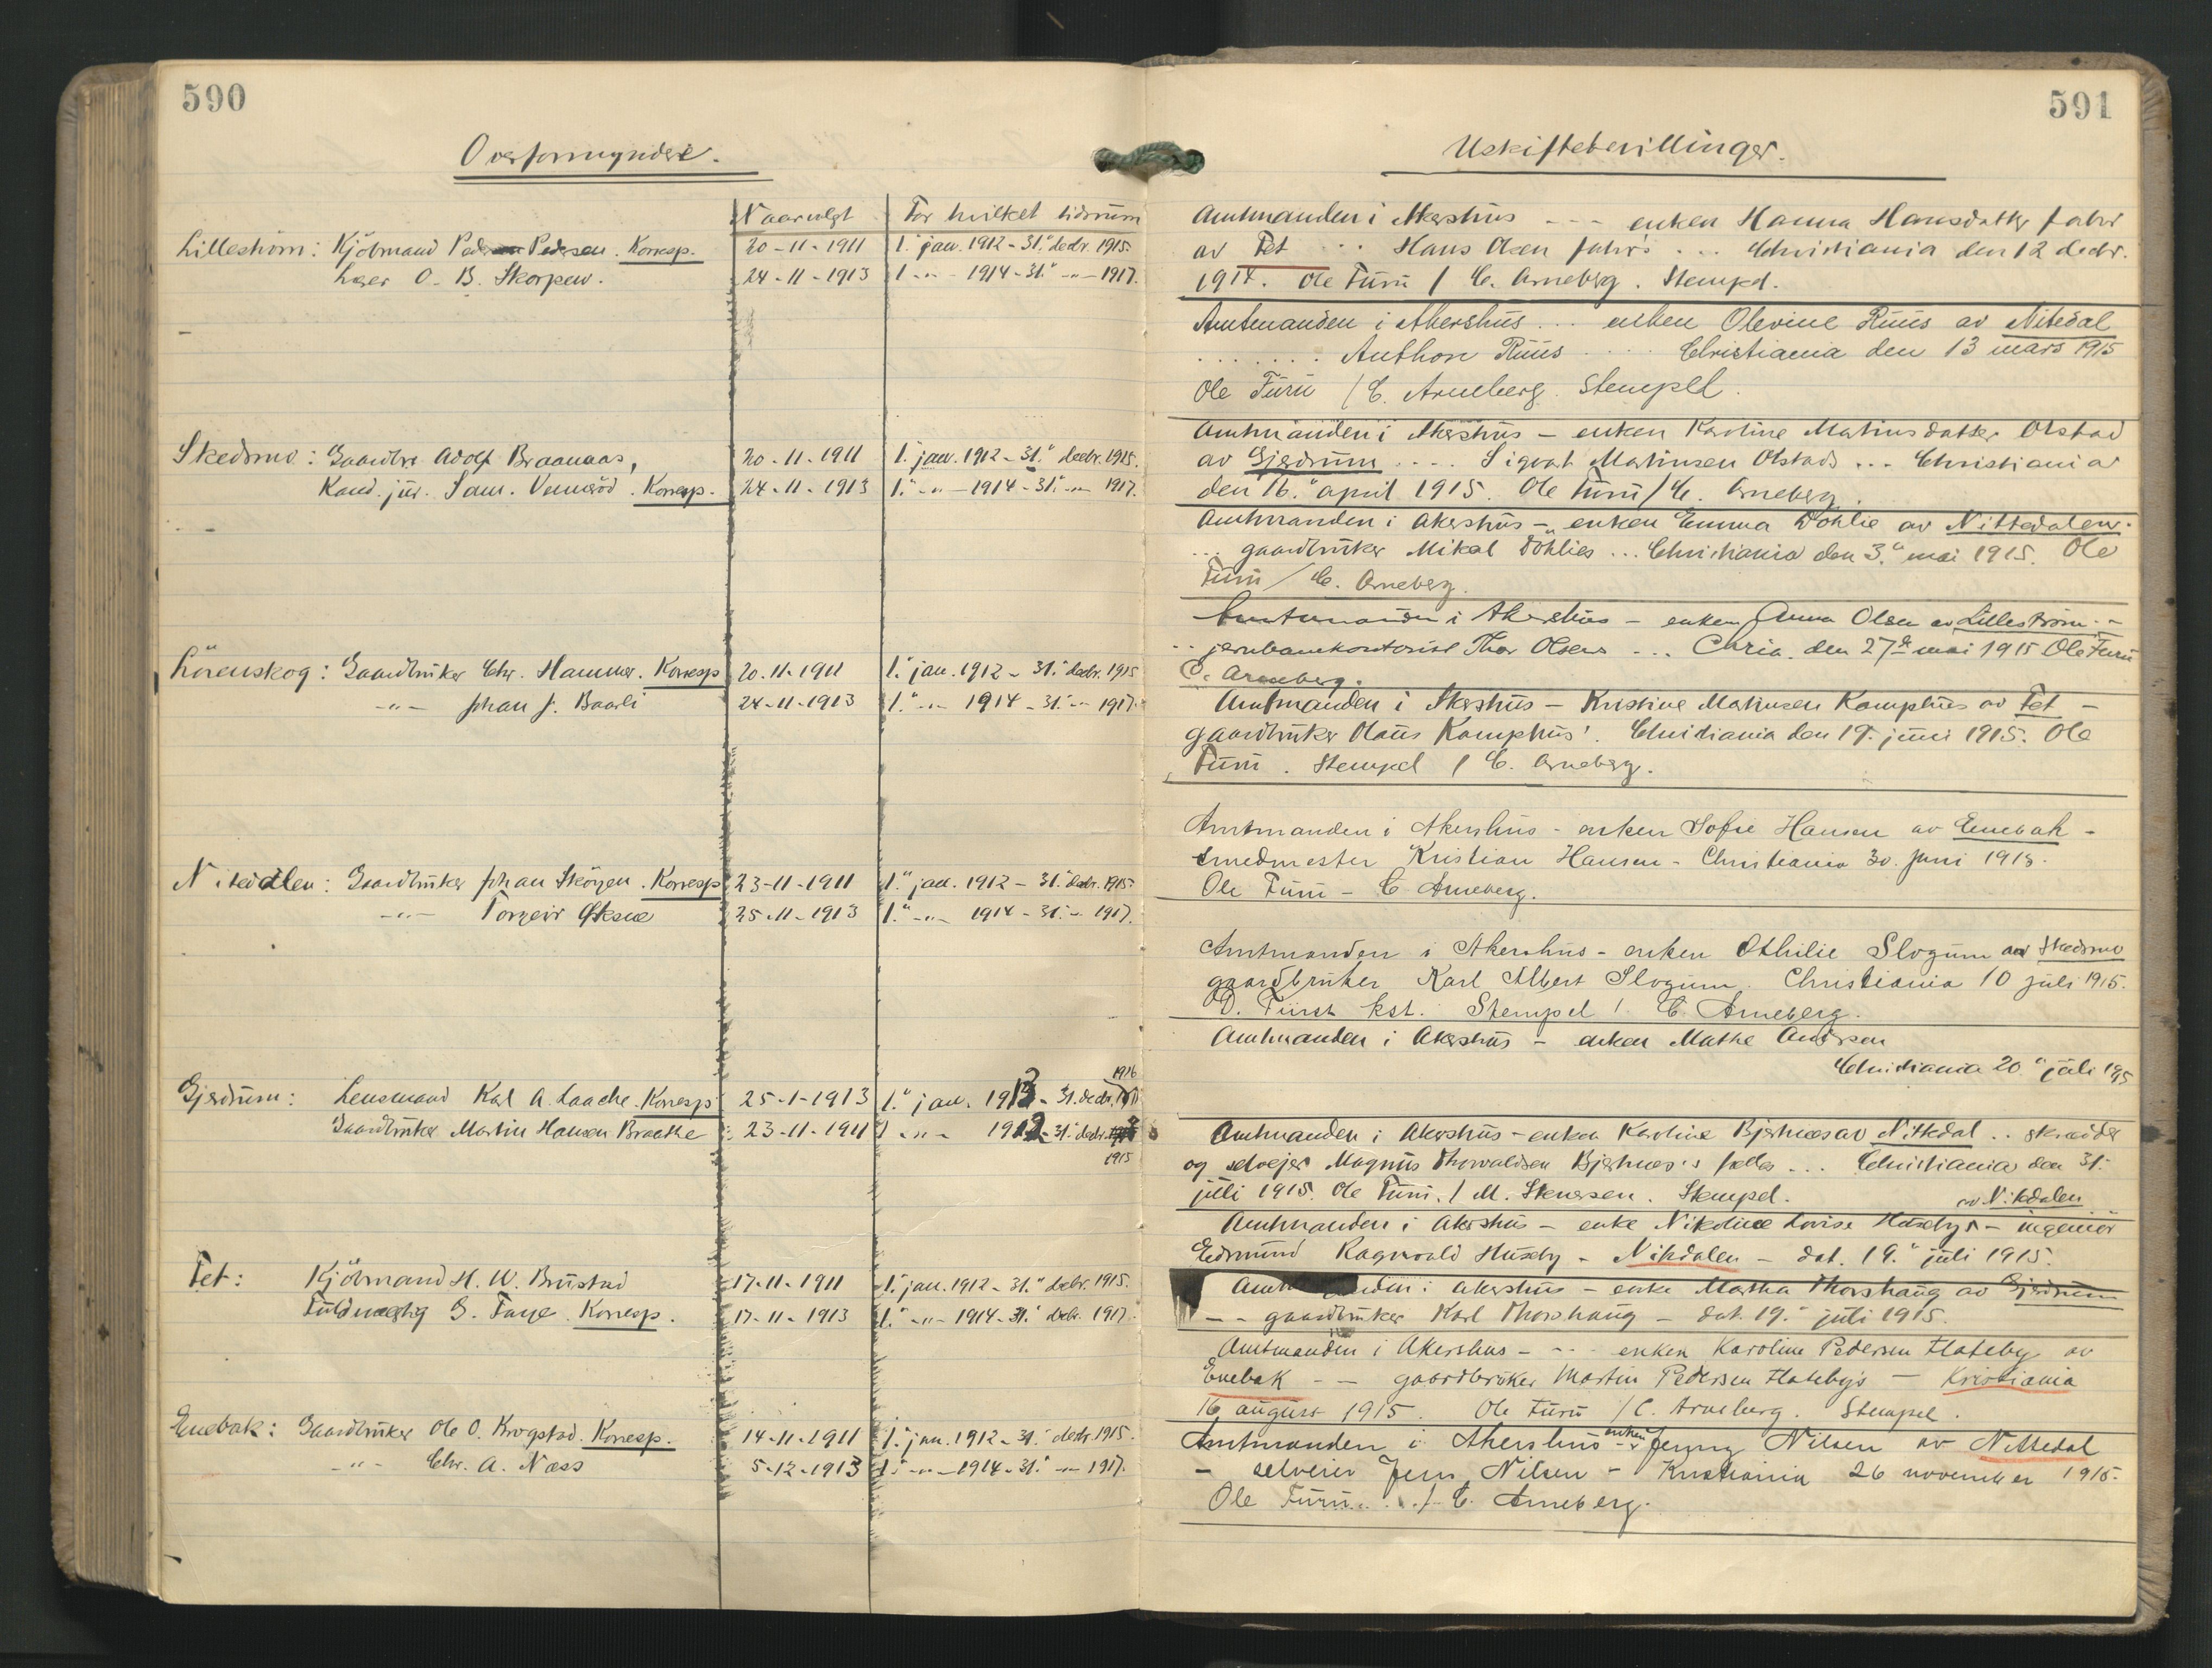 590
Overformyndere.
Naar valgt For hvilket tidsrum
Lilleström: Kjöbmand Peder Pedersen. Korresp. 20-11-1911 1. jan. 1912 - 31. decbr. 1915.
Læge O. B. Skorpen. 24-11-1913 1 -"- 1914 - 31. -"- 1917.
Skedsmo: Gaardbr. Adolf Braanaas, 20-11-1911 1. jan. 1912 - 31. decbr. 1915.
Kand. jur. Sam. Korresp. 24-11-1913 1. -"- 1914 - 31. -"- 1917.
Lörenskog: Gaardbruker Chr. Hammer. Korresp 20.11.1911 1. jan. 1912 - 31. decbr. 1915
-"- Johan J. Baarli 24-11-1913 1. -"- 1914 - 31. -"- 1917.
Nitedalen: Gaardbruker Johan Sköyen. Korresp 23-11-1911 1. jan. 1912 - 31. decbr. 1915.
-"- Torgeir 25-11-1913 1. -"- 1914 - 31. -"- 1917.
1916
Gjerdrum: Lensmand Karl A. Laache. Korresp 25-1-1913 1. jan. 1913 - 31. decbr.
Gaardbruker Martin Hansen Braathe 23-11-1911 1 -"- 1912 - 31. decbr.
1915
Fet: Kjöbmand H. W. Brustad 17-11-1911 1. jan. 1912 - 31. decbr. 1915.
Fuldmægtig G. Faye. Korresp. 17-11-1913 1. -"- 1914 - 31. decbr. 1917.
Enebak: Gaardbruker Ole O. Krogstad. Korresp. 14-11-1911 1. jan. 1912 - 31. decbr. 1915.
-"- Chr. A. Næss 5-12-1913 1. -"- 1914 - 31. -"- 1917.
591
Uskiftebevillinger.
Amtmanden i Akershus - - - enken Hanna Hansdatter Jahr
av Fet ... Hans Olsen Jahr's ... Christiania den 12 decbr.
1914. Ole Furu / C. Arneberg. Stempel.
Amtmanden i Akershus ... enken Olevine Ruus av Nitedal
....... Anthon Ruus .... Christiania den 13 mars 1915
Ole Furu / C. Arneberg. Stempel.
Amtmanden i Akershus - enken Karoline Martinsdatter Olstad
av Gjerdrum .... Sigvat Martinsen Olstads ... Christiania
den 16. april 1915. Ole Furu / C. Arneberg.
Amtmanden i Akershus - enken Emma Döhlie av Nittedalen.
... gaardbruker Mikal Döhlies ... Christiania den 3. mai 1915. Ole
Furu / C. Arneberg.
Amtmanden i Akershus - enken Anna Olsen av Lilleström - -
.. jernbanekontorist Thor Olsens ... Chria. den 27de mai 1915 Ole Furu
C. Arneberg.
Amtmanden i Akershus - Kristine Martinsen Kamphus av Fet -
gaardbruker Olaus Kamphus'. Christiania den 19. juni 1915. Ole
Furu. Stempel / C. Arneberg.
Amtmanden i Akershus - enken Sofie Hansen av Enebak -
smedmester Kristian Hansen - Christiania 30. juni 1915.
Ole Furu - C Arneberg.
Amtmanden i Akershus - enken Othilie Slogum av Skedsmo
gaardbruker Karl Albert Slogum. Christiania 10 juli 1915.
D. Fürst kst. Stempel / C. Arneberg.
Amtmanden i Akershus - enken Mathe Andersen
Christiania 20. juli 1915
Amtmanden i Akershus - enken Karoline Bjerknes av Nittedal .. skrædder
og selveier Magnus Thorvaldsen Bjerknes's fælles ... Christiania den 31.
juli 1915. Ole Furu. / M. Stenersen. Stempel.
av Nitedalen
Amtmanden i Akershus - enke Nikoline Lovise Huseby - ingeniör
Edmund Ragnvald Huseby - Nitedalen - dat. 19. juli 1915.
Amtmanden i Akershus - enke Martha Thorshaug av Gjerdrum
- - gaardbruker Karl Thorshaug - dat. 19. juli 1915.
Amtmanden i Akershus - - - enken Karoline Pedersen Flateby av
Enebak - - gaardbruker Martin Pedersen Flateby's - Kristiania
16 august 1915. Ole Furu / C. Arneberg. Stempel.
Amtmanden i Akershus - enken Jenny Nilsen av Nittedal
- selveier Jens Nilsen - Kristiania 26 november 1915.
Ole Furu .../ C. Arneberg.